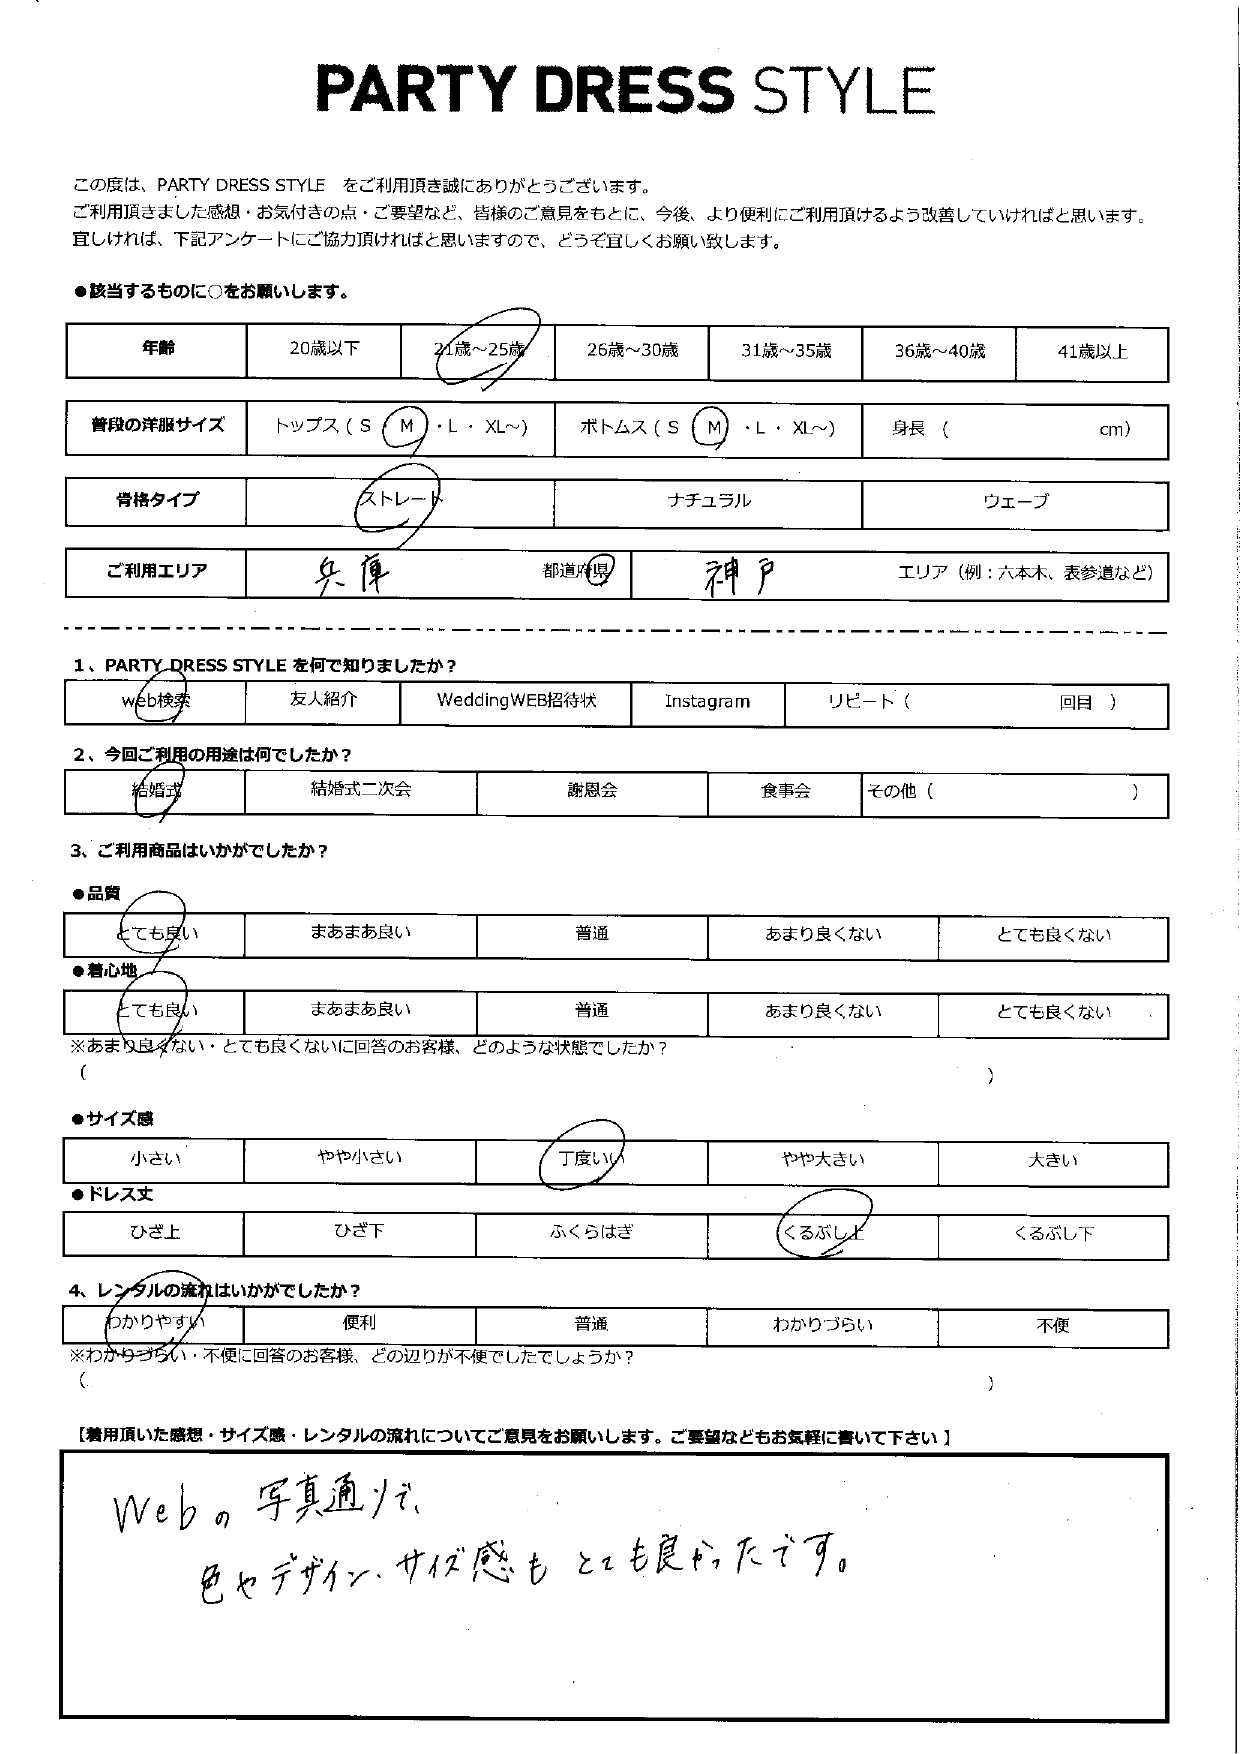 PARTY DRESS STYLE
この度は、PARTY DRESS STYLE をご利用頂き誠にありがとうございます。
ご利用頂きました感想・お気付きの点・ご要望など、皆様のご意見をもとに、今後、より便利にご利用頂けるよう改善していければと思います。
宜しければ、下記アンケートにご協力頂ければと思いますので、どうぞ宜しくお願い致します。
●該当するものに○をお願いします。
年齢 20歳以下 21歳～25歳 26歳～30歳 31歳～35歳 36歳～40歳 41歳以上
普段の洋服サイズ トップス ( S ・ M ・L ・ XL～) ボトムス ( S ・ M ・L ・ XL～) 身長 ( cm)
骨格タイプ ストレート ナチュラル ウェーブ
ご利用エリア 兵庫 都道府県 神戸 エリア（例：六本木、表参道など）
1、PARTY DRESS STYLE を何で知りましたか？
web検索 友人紹介 WeddingWEB招待状 Instagram リピート ( 回目 )
2、今回ご利用の用途は何でしたか？
結婚式 結婚式二次会 謝恩会 食事会 その他 ( )
3、ご利用商品はいかがでしたか？
●品質
とても良い まあまあ良い 普通 あまり良くない とても良くない
●着心地
とても良い まあまあ良い 普通 あまり良くない とても良くない
※あまり良くない・とても良くないに回答のお客様、どのような状態でしたか？
( )
●サイズ感
小さい やや小さい 丁度いい やや大きい 大きい
●ドレス丈
ひざ上 ひざ下 ふくらはぎ くるぶし上 くるぶし下
4、レンタルの流れはいかがでしたか？
わかりやすい 便利 普通 わかりづらい 不便
※わかりづらい・不便に回答のお客様、どの辺りが不便でしたでしょうか？
( )
【着用頂いた感想・サイズ感・レンタルの流れについてご意見をお願いします。ご要望などもお気軽に書いて下さい 】
Webの写真通りで、
色やデザイン、サイズ感もとても良かったです。